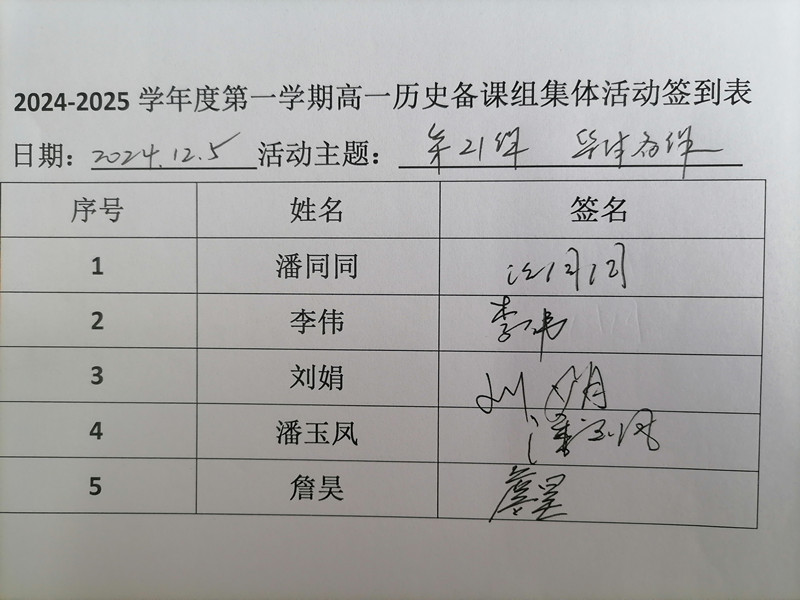 2024-2025 学年度第一学期高一历史备课组集体活动签到表
日期：2024.12.5 活动主题：第21课 集体备课
序号 姓名 签名
1 潘同同 潘同同
2 李伟 李伟
3 刘娟 刘娟
4 潘玉凤 潘玉凤
5 詹昊 詹昊